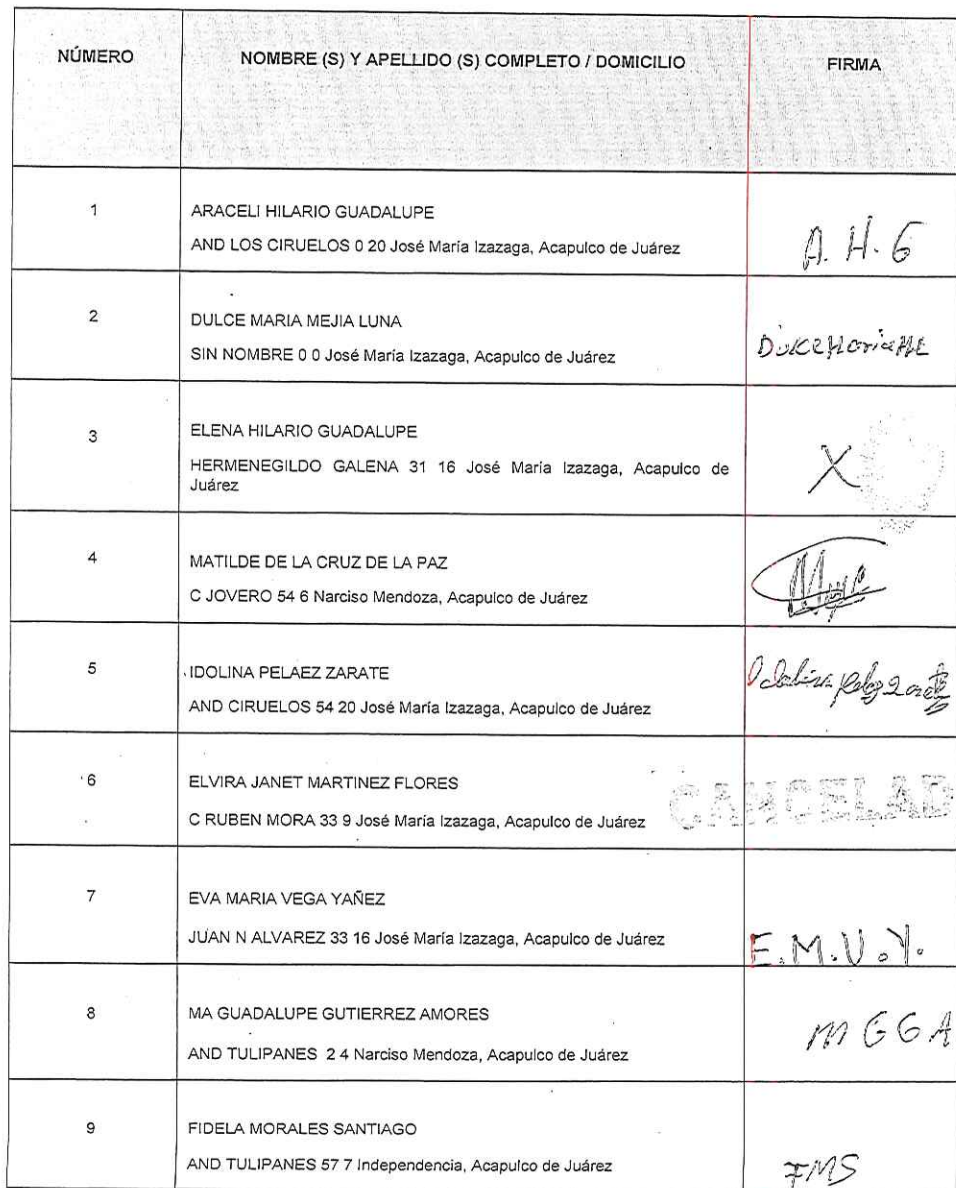 NÚMERO
NOMBRE (S) Y APELLIDO (S) COMPLETO / DOMICILIO
FIRMA
1
ARACELI HILARIO GUADALUPE
AND LOS CIRUELOS 0 20 José María Izazaga, Acapulco de Juárez
A. H. G
2
DULCE MARIA MEJIA LUNA
SIN NOMBRE 0 0 José María Izazaga, Acapulco de Juárez
3
ELENA HILARIO GUADALUPE
HERMENEGILDO GALENA 31 16 José María Izazaga, Acapulco de
Juárez
X
4
MATILDE DE LA CRUZ DE LA PAZ
C JOVERO 54 6 Narciso Mendoza, Acapulco de Juárez
5
IDOLINA PELAEZ ZARATE
AND CIRUELOS 54 20 José María Izazaga, Acapulco de Juárez
6
ELVIRA JANET MARTINEZ FLORES
C RUBEN MORA 33 9 José María Izazaga, Acapulco de Juárez
CANCELAD
7
EVA MARIA VEGA YAÑEZ
JUAN N ALVAREZ 33 16 José María Izazaga, Acapulco de Juárez
E.M.V.Y.
8
MA GUADALUPE GUTIERREZ AMORES
AND TULIPANES 2 4 Narciso Mendoza, Acapulco de Juárez
M G G A
9
FIDELA MORALES SANTIAGO
AND TULIPANES 57 7 Independencia, Acapulco de Juárez
FMS